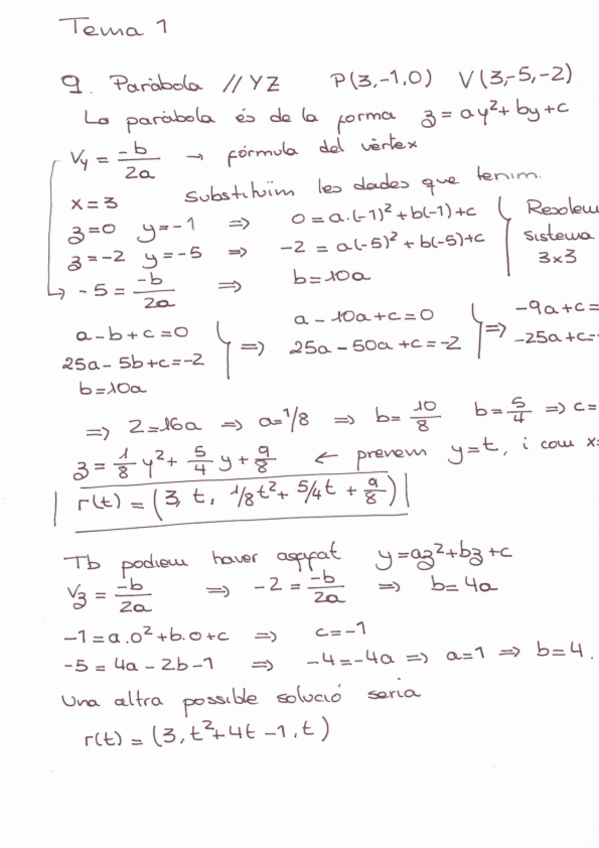 Tema 1
9. Paràbola // YZ P(3,-1,0) V(3,-5,-2)
La paràbola és de la forma z = ay²+ by+c
Vy = -b/2a → fórmula del vèrtex
x=3 Substituïm les dades que tenim.
z=0 y=-1 ⇒ 0=a.(-1)²+b(-1)+c
z=-2 y=-5 ⇒ -2 = a(-5)²+b(-5)+c
Resolem
sistema
3x3
→ -5 = -b/2a ⇒ b=10a
a-b+c=0
25a-5b+c=-2
b=10a
⇒ a-10a+c=0
25a-50a+c=-2
⇒ -9a+c=
-25a+c=-
⇒ 2=16a ⇒ a=1/8 ⇒ b= 10/8 b= 5/4 ⇒ c=
z= 1/8 y²+ 5/4 y+ 9/8 ← prenem y=t, i com x=
r(t) = (3, t, 1/8t²+ 5/4t + 9/8)
Tb podíem haver agafat y=az²+bz+c
Vz = -b/2a ⇒ -2 = -b/2a ⇒ b=4a
-1=a.0²+b.0+c ⇒ c=-1
-5 = 4a-2b-1 ⇒ -4=-4a ⇒ a=1 ⇒ b=4.
Una altra possible solució seria
r(t) = (3, t²+4t-1, t)